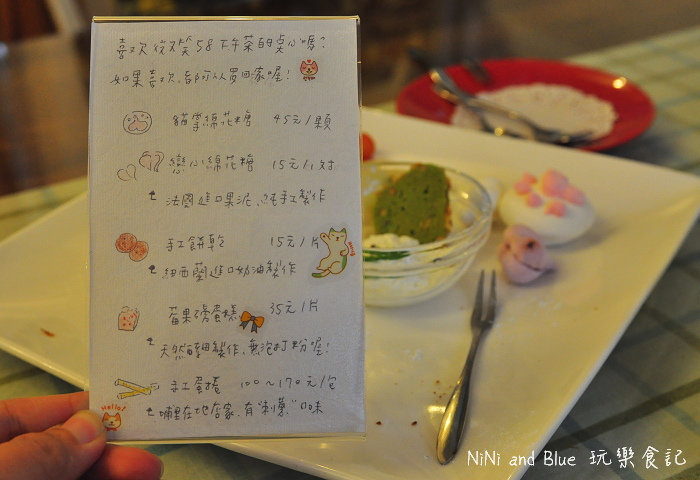 喜歡微笑58下午茶的桌心嗎?
如果喜歡,都可以買回家喔!
貓掌綿花糖 45元/顆
戀心綿花糖 15元/1対
法國進口果泥、純手工製作
手工餅乾 15元/片
紐西蘭進口奶油製作
莓果磅蛋糕 35元/片
天然莓果製作,無泡打粉喔!
手工蛋捲 100~170元/包
Hello!
埔里在地店家,有"刺蔥"口味
NiNi and Blue 玩樂食記